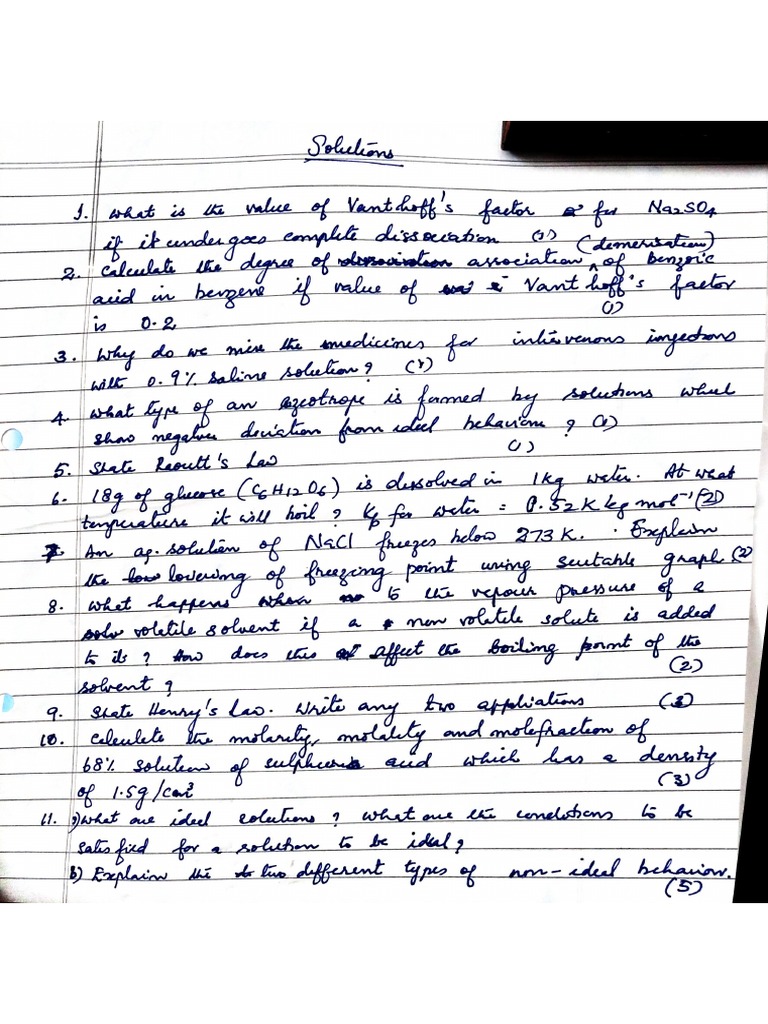 Solutions
1. What is the value of Vant hoff's factor for Na2SO4
if it undergoes complete dissociation (1) (dimerisation)
2. Calculate the degree of association ^ of benzoic
acid in benzene if value of Vant hoff's factor
is 0.2 (1)
3. Why do we mix the medicines for intravenous injections
with 0.9% saline solution? (1)
4. What type of an azeotrope is formed by solutions which
show negative deviation from ideal behaviour? (1)
5. State Raoult's Law (1)
6. 18g of glucose (C6H12O6) is dissolved in 1kg water. At what
temperature it will boil? Kb for water = 0.52 K kg mol-1 (2)
7. An aq. solution of NaCl freezes below 273 K. Explain
the lowering of freezing point using suitable graph (2)
8. What happens to the vapour pressure of a
volatile solvent if a non volatile solute is added
to it? How does this affect the boiling point of the
solvent? (2)
9. State Henry's Law. Write any two appliations (3)
10. Calculate the molarity, molality and molefraction of
68% solution of sulphuric acid which has a density
of 1.5g/cm3 (3)
11. a) What are ideal solutions? What are the conditions to be
satisfied for a solution to be ideal?
b) Explain the two different types of non-ideal behaviour.
(5)